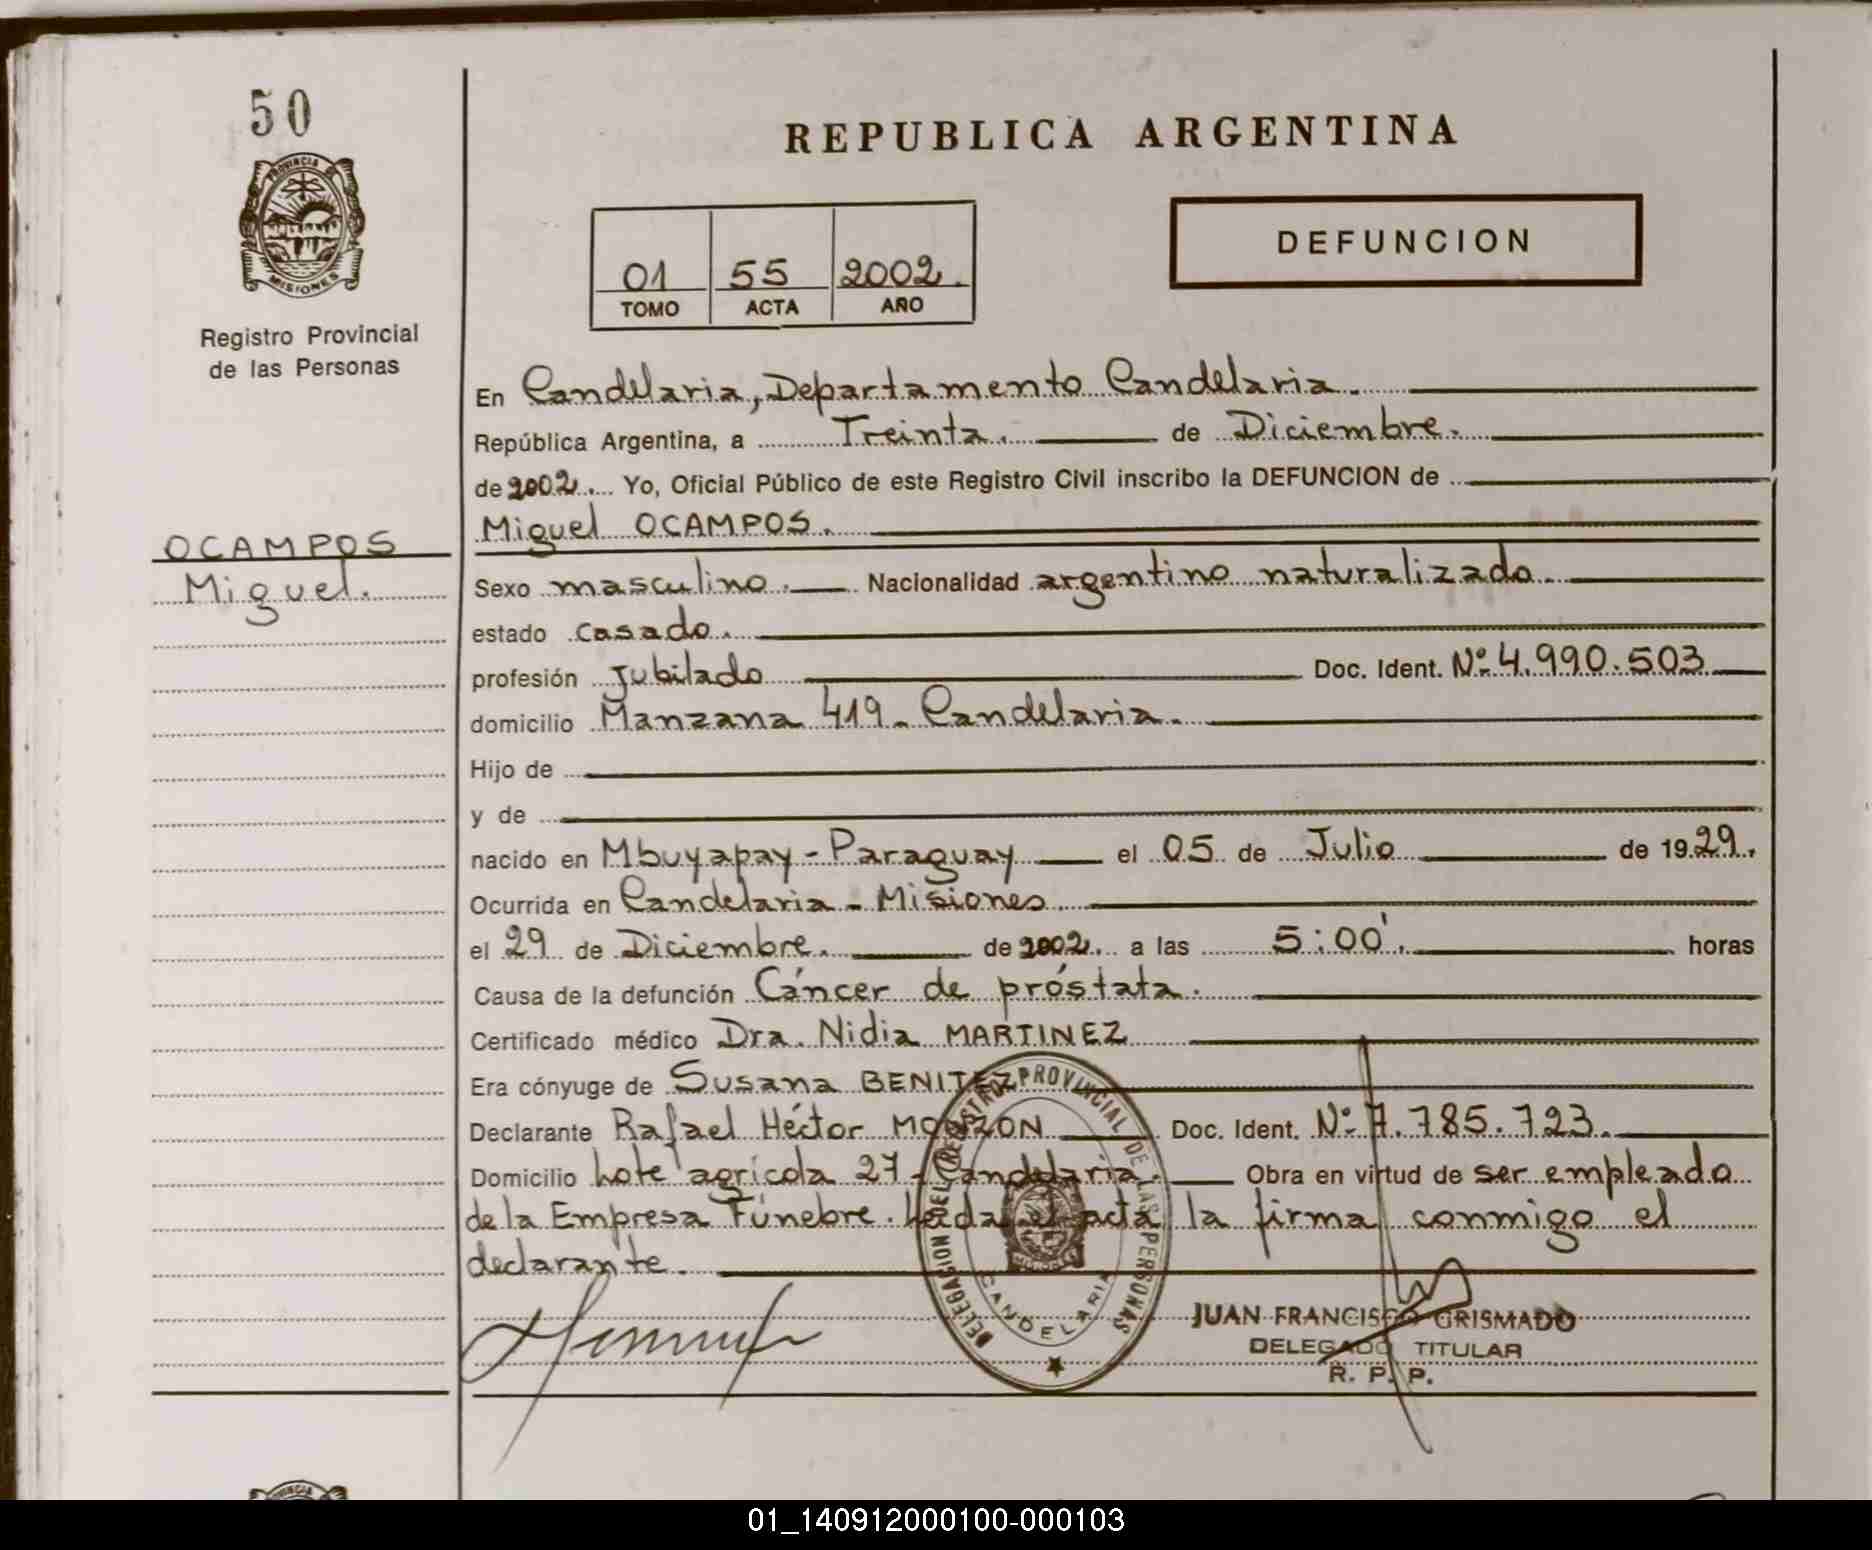 50
PROVINCIA DE
MISIONES
Registro Provincial
de las Personas
OCAMPOS
Miguel.
REPUBLICA ARGENTINA
01 55 2002.
TOMO ACTA AÑO
DEFUNCION
En Candelaria, Departamento Candelaria.
República Argentina, a Treinta. de Diciembre.
de 2002. Yo, Oficial Público de este Registro Civil inscribo la DEFUNCION de
Miguel OCAMPOS.
Sexo masculino. Nacionalidad argentino naturalizado.
estado casado.
profesión Jubilado Doc. Ident. Nº 4.990.503
domicilio Manzana 419 - Candelaria.
Hijo de
y de
nacido en Mbuyapay - Paraguay el 05 de Julio de 1929.
Ocurrida en Candelaria - Misiones
el 29 de Diciembre. de 2002. a las 5:00'. horas
Causa de la defunción Cáncer de próstata.
Certificado médico Dra. Nidia MARTINEZ
Era cónyuge de Susana BENITEZ
Declarante Rafael Héctor MONZON Doc. Ident. Nº 7.785.723.
Domicilio Lote agrícola 27 - Candelaria. Obra en virtud de ser empleado
de la Empresa Fúnebre. Leida el acta la firma conmigo el
declarante.
DELEGACION DEL REGISTRO PROVINCIAL DE LAS PERSONAS
CANDELARIA
JUAN FRANCISCO GRISMADO
DELEGADO TITULAR
R. P. P.
PROVINCIA
01_140912000100-000103